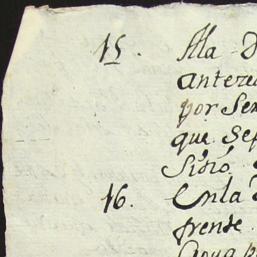 15. Ala D
anteze
por Se
que se
Sidió
16. Enla
frente